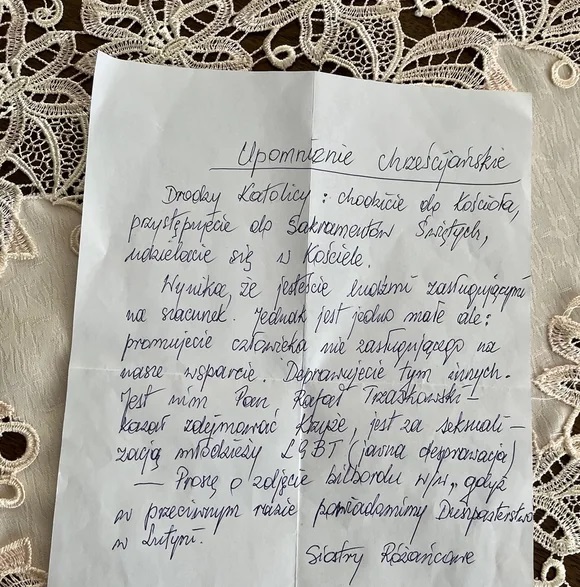 Upomnienie chrześcijańskie
Drodzy Katolicy: chodzicie do Kościoła,
przystępujecie do Sakramentów Świętych,
udzielacie się w Kościele.
Wynika, że jesteście ludźmi zasługującymi
na szacunek. Jednak jest jedno małe ale:
promujecie człowieka nie zasługującego na
nasze wsparcie. Deprawujecie tym innych.
Jest nim Pan Rafał Trzaskowski –
kazał zdejmować krzyże, jest za seksuali–
zacją młodzieży LGBT (jawna deprawacja)
— Proszę o zdjęcie bilbordu w/w, gdyż
w przeciwnym razie powiadamimy Duszpasterstwo
w Lutyni.
Siostry Różańcowe